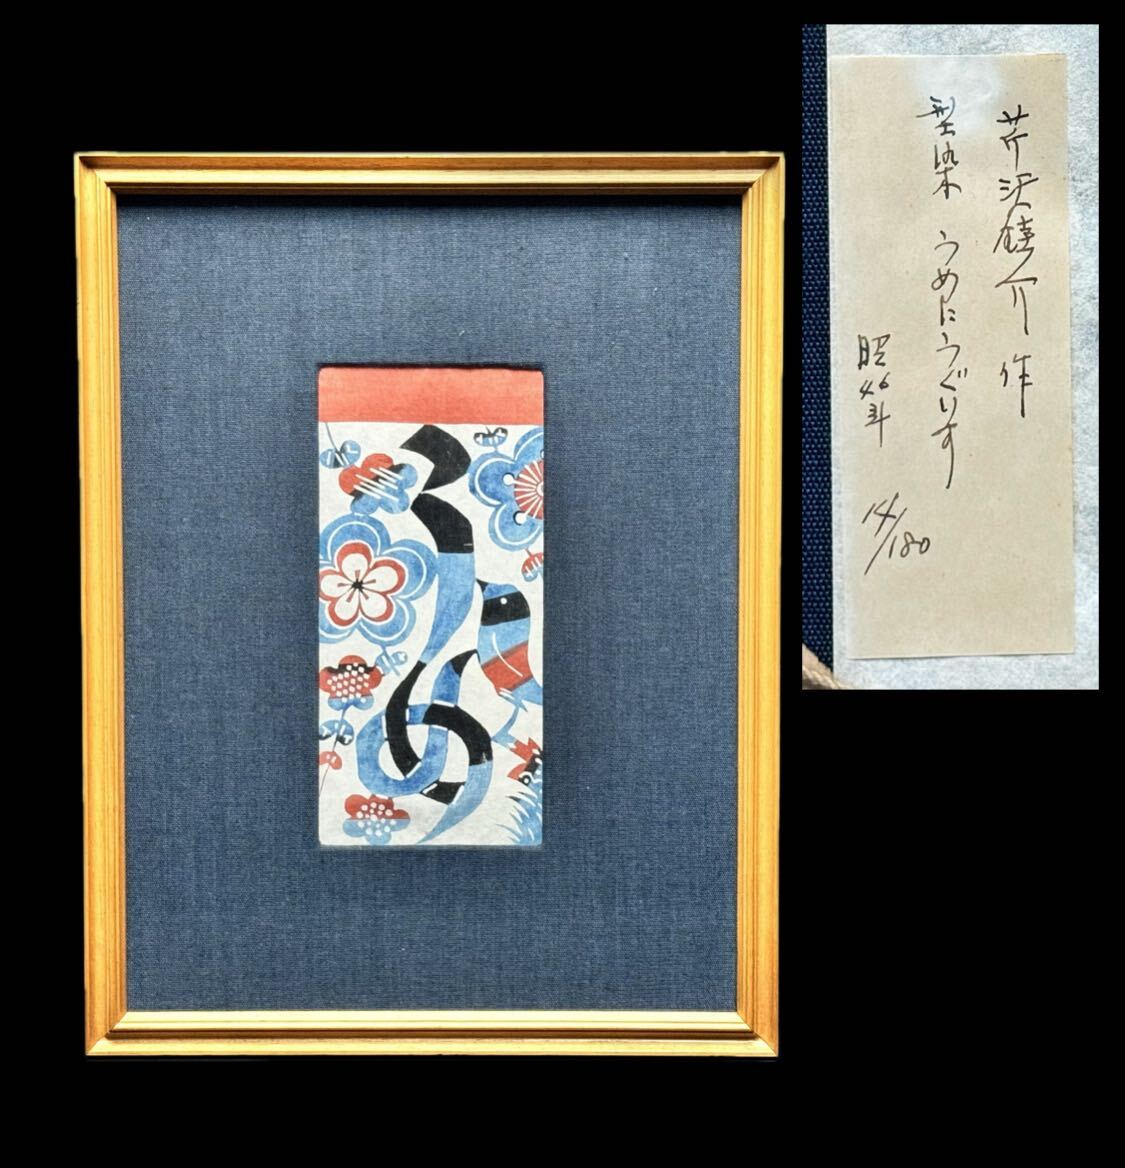 芹沢銈介 作
型染 うめにうぐいす
昭46年
14/180